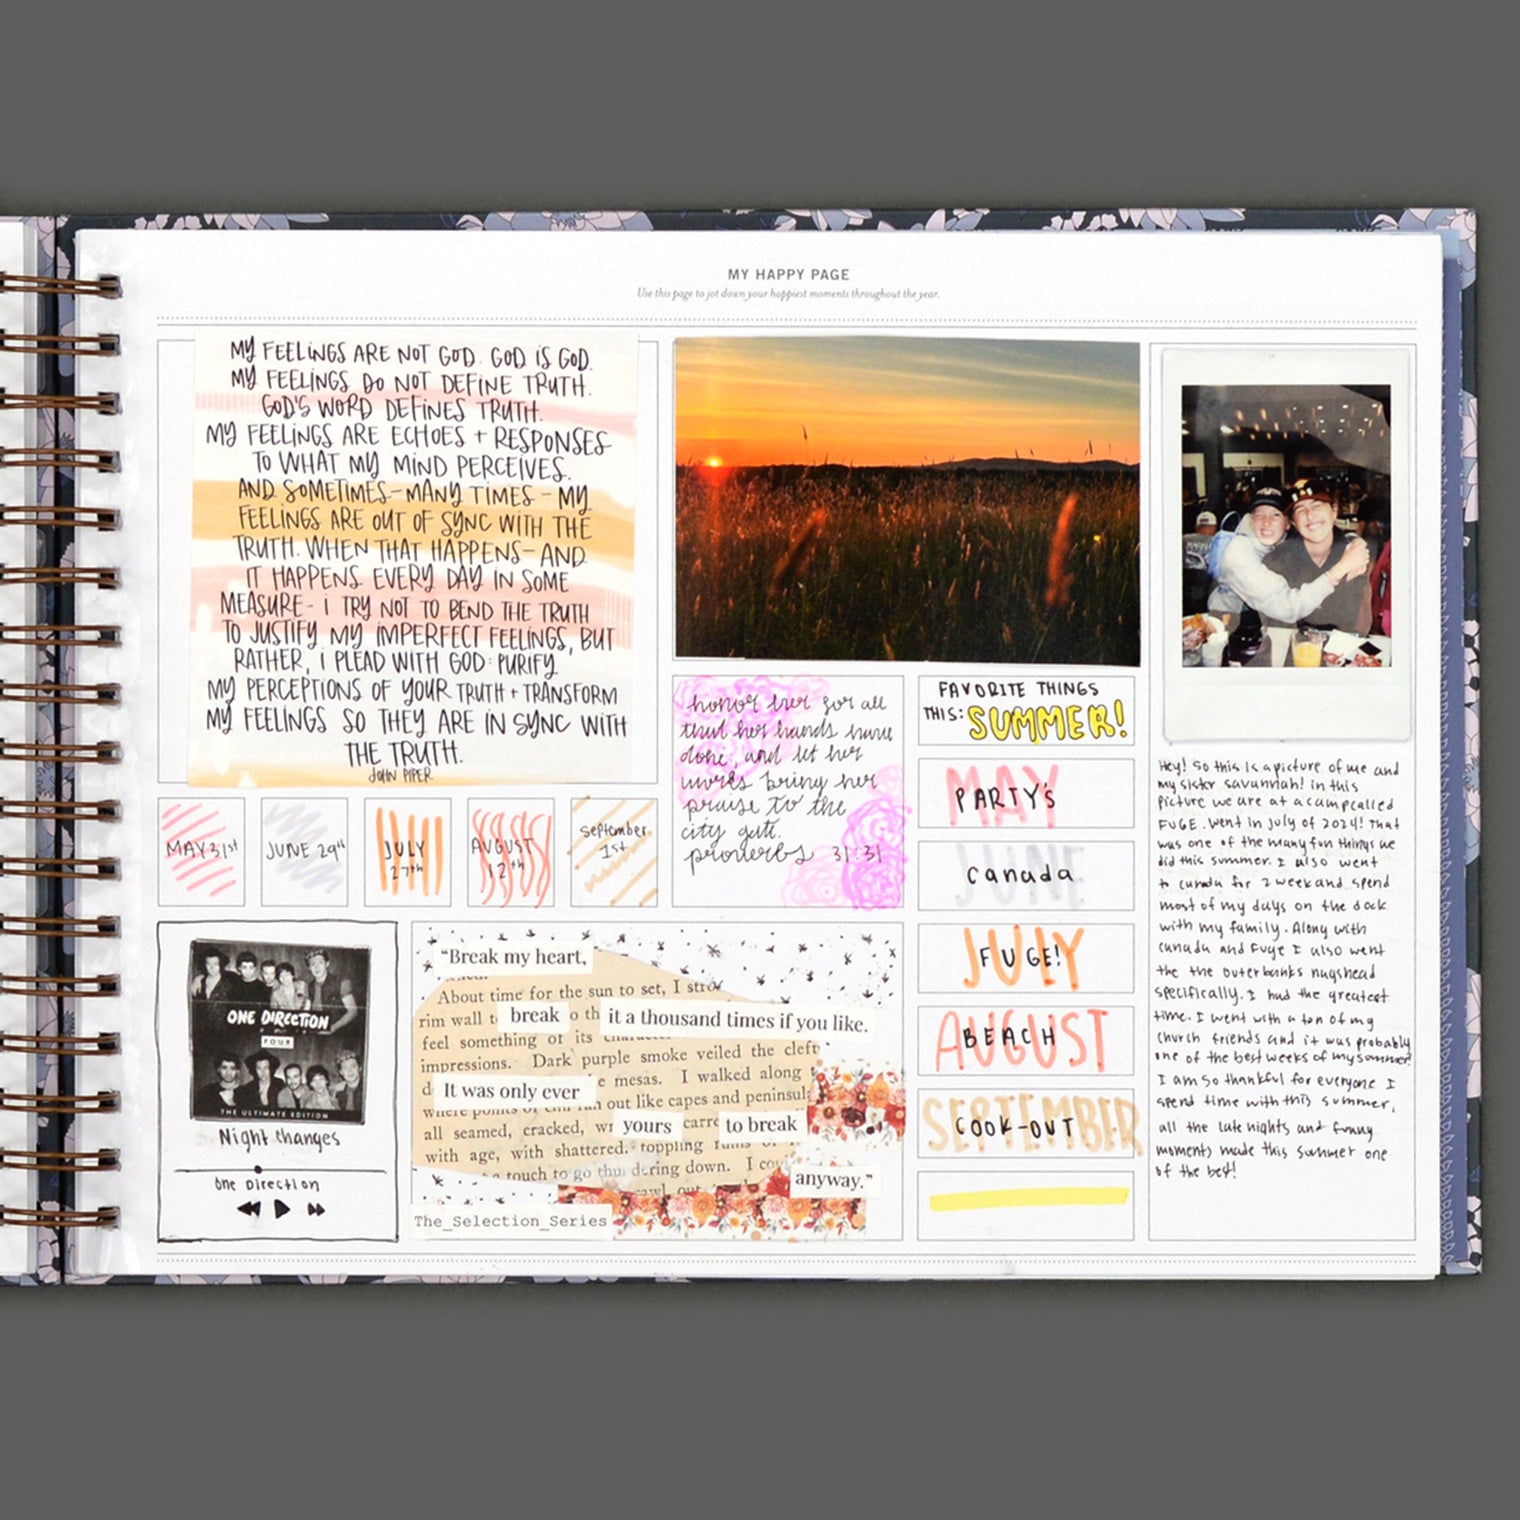 MY HAPPY PAGE
Use this page to jot down your happiest moments throughout the year.
MY FEELINGS ARE NOT GOD. GOD IS GOD.
MY FEELINGS DO NOT DEFINE TRUTH.
GOD'S WORD DEFINES TRUTH.
MY FEELINGS ARE ECHOES + RESPONSES
TO WHAT MY MIND PERCEIVES.
AND SOMETIMES - MANY TIMES - MY
FEELINGS ARE OUT OF SYNC WITH THE
TRUTH. WHEN THAT HAPPENS - AND
IT HAPPENS EVERY DAY IN SOME
MEASURE - I TRY NOT TO BEND THE TRUTH
TO JUSTIFY MY IMPERFECT FEELINGS, BUT
RATHER, I PLEAD WITH GOD: PURIFY
MY PERCEPTIONS OF YOUR TRUTH + TRANSFORM
MY FEELINGS SO THEY ARE IN SYNC WITH
THE TRUTH.
JOHN PIPER
MAY 31st
JUNE 29th
JULY
27th
AUGUST
12th
September
1st
ONE DIRECTION
FOUR
THE ULTIMATE EDITION
Night Changes
One Direction
honor her for all
that her hands have
done, and let her
works bring her
praise to the
city gate.
proverbs 31:31
"Break my heart,
About time for the sun to set, I
rim wall break it a thousand times if you like.
feel something of its
impressions. Dark purple smoke veiled the cleft
It was only ever mesas. I walked along
where points of out like capes and peninsul
all seamed, cracked, yours to break
with age, with shattered. toppling
touch to go thundering down. I
anyway."
The_Selection_Series
FAVORITE THINGS
THIS: SUMMER!
MAY
PARTY'S
JUNE
Canada
JULY
FUGE!
AUGUST
BEACH
SEPTEMBER
COOK-OUT
Hey! So this is a picture of me and
my sister savannah! in this
picture we are at a camp called
FUGE. went in July of 2024! That
was one of the many fun things we
did this summer. I also went
to canada for 2 week and spend
most of my days on the dock
with my family. Along with
canada and Fuge I also went
the the outerbanks nagshead
specifically. I had the greatest
time. I went with a ton of my
church friends and it was probably
one of the best weeks of my summer!
I am so thankful for everyone I
spend time with this summer,
all the late nights and funny
moments made this summer one
of the best!